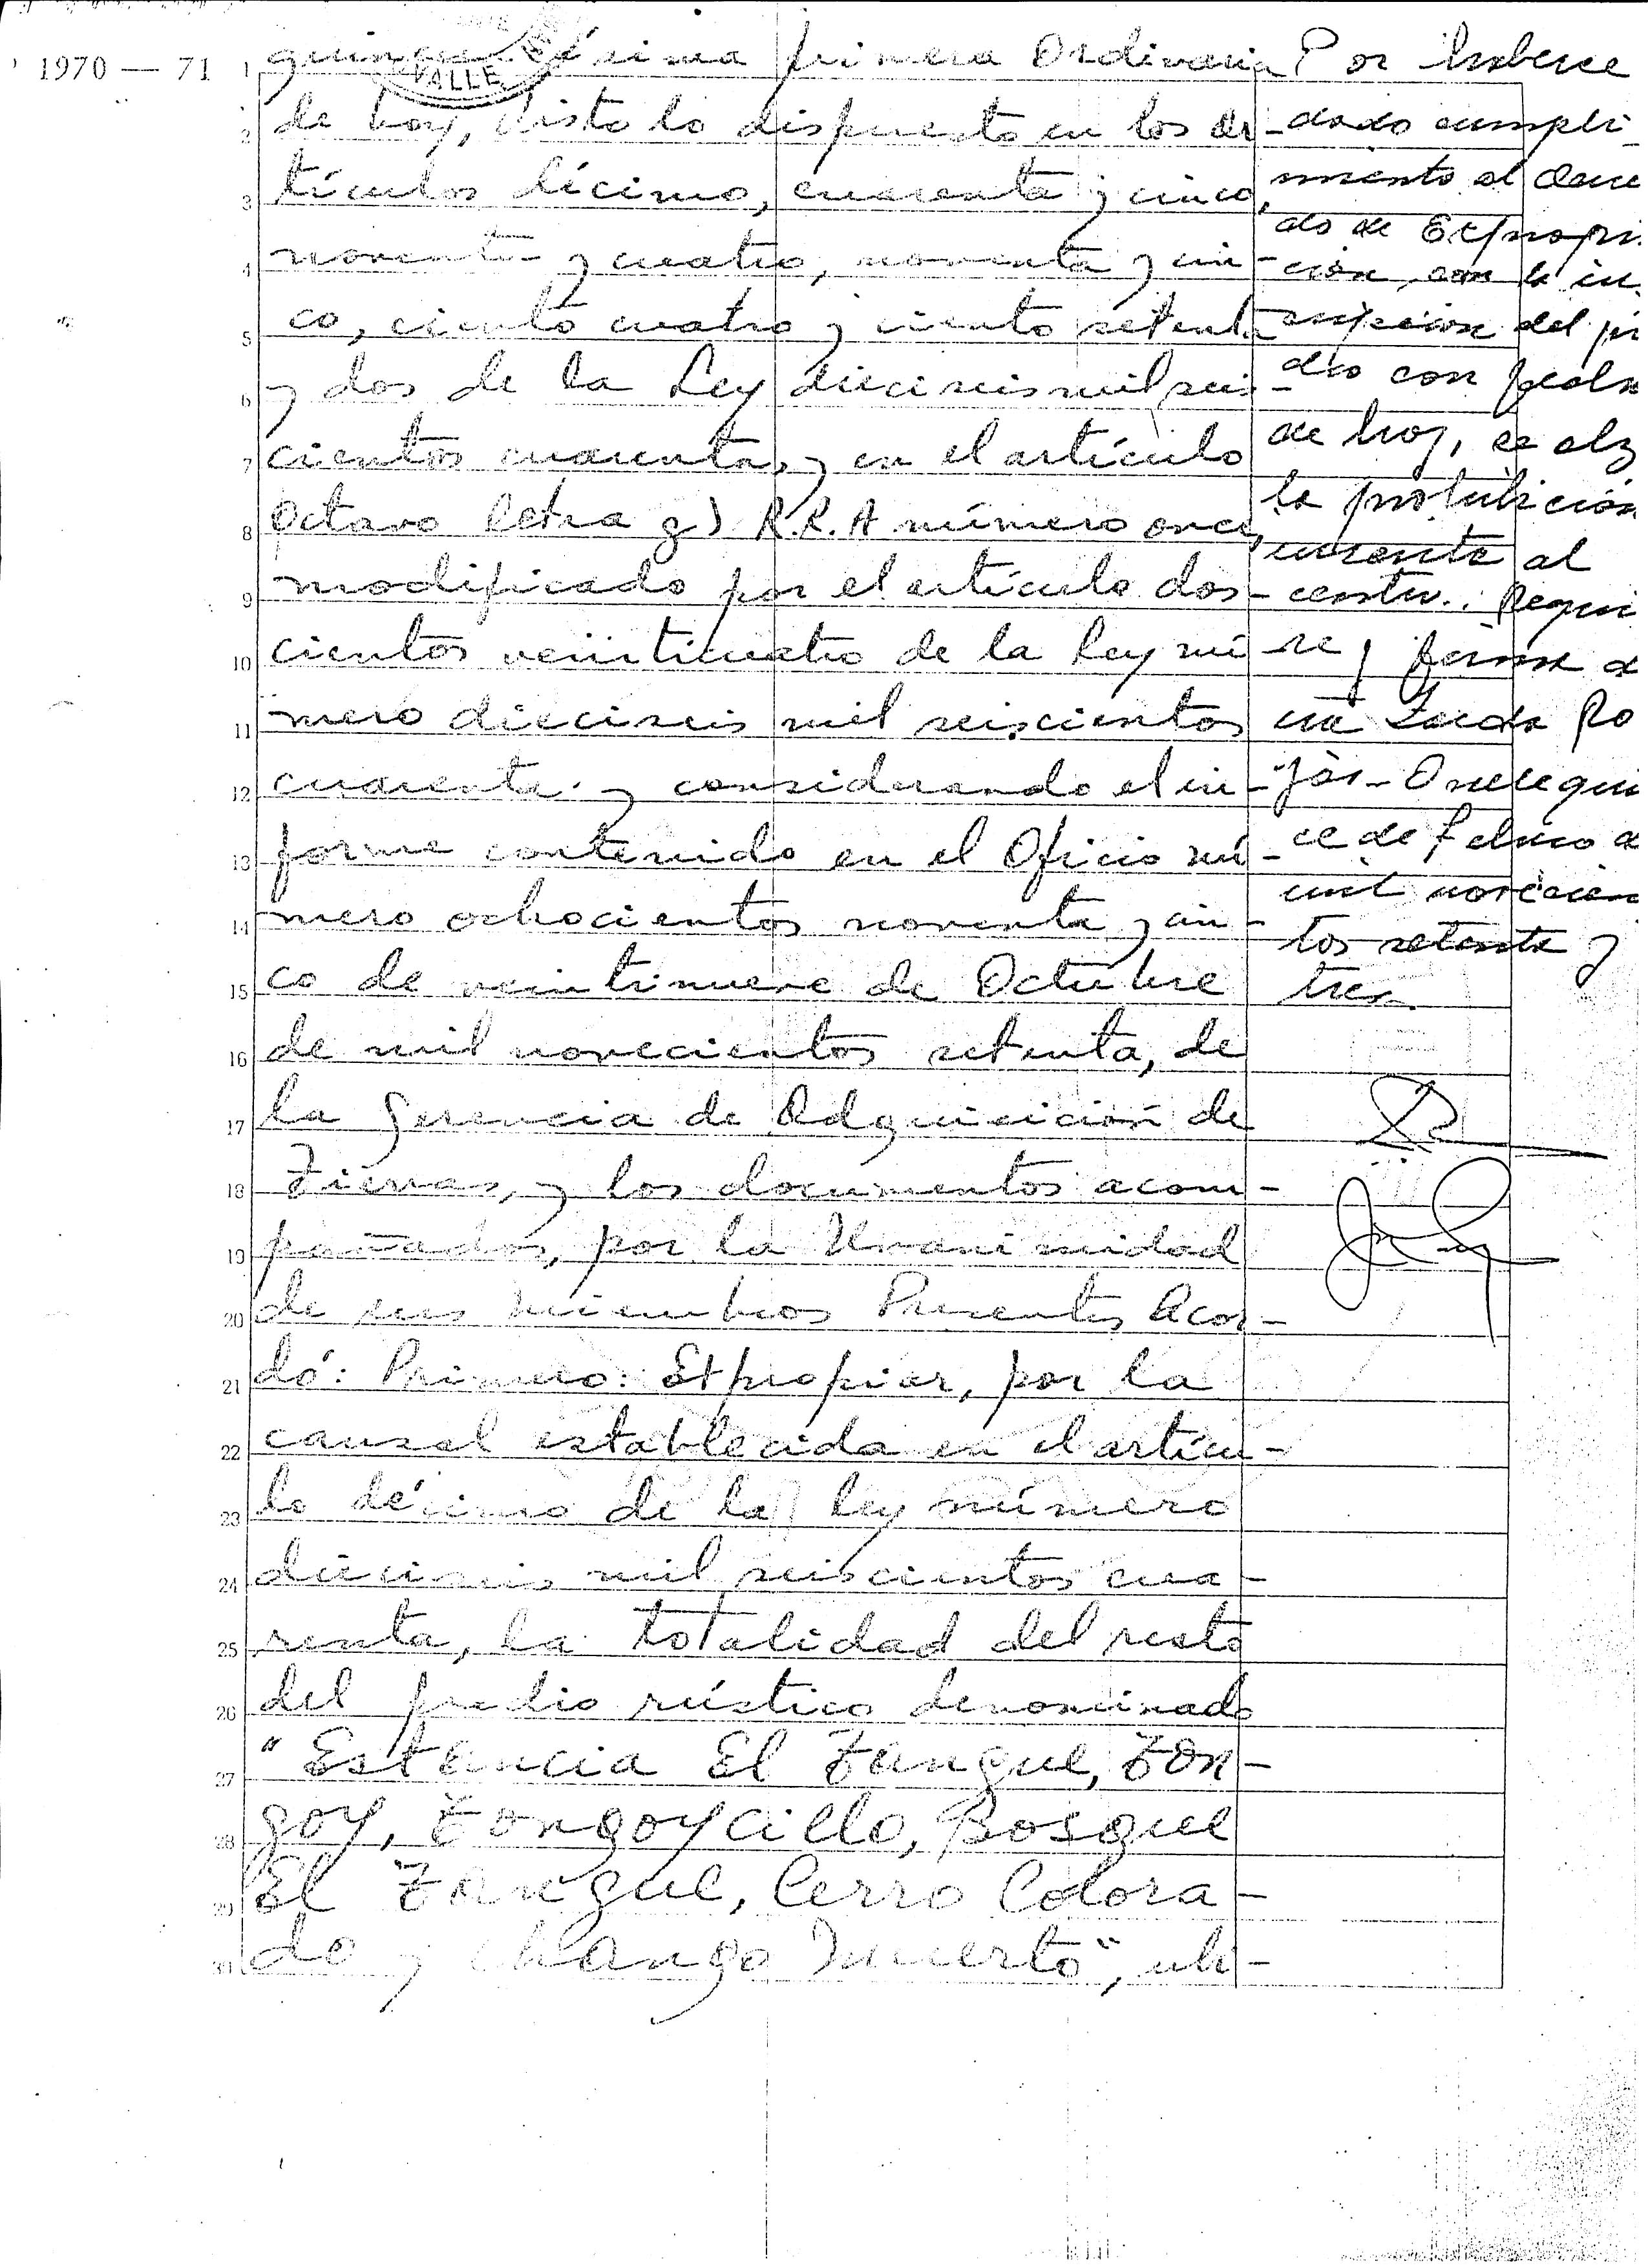 1970 — 71
1 primera Ordinaria
VALLE
2 de hoy, visto lo dispuesto en los ar-
3 tículos décimo, cuarenta y cinco,
4 noventa y cuatro, noventa y cin-
5 co, ciento cuatro y ciento setenta
6 y dos de la Ley dieciseis mil seis-
7 cientos cuarenta, y en el artículo
8 Octavo letra g) R.R.A número once,
9 modificado por el artículo dos-
10 cientos veinticuatro de la Ley nú
11 mero dieciseis mil seiscientos
12 cuarenta y considerando el in-
13 forme contenido en el Oficio nú-
14 mero ochocientos noventa y cin-
15 co de veintinueve de Octubre
16 de mil novecientos setenta, de
17 la Gerencia de Adquisición de
18 Tierras, y los documentos acom-
19 pañados, por la Unanimidad
20 de sus miembros Presentes Acor-
21 dó: Primero: Expropiar, por la
22 causal establecida en el artícu-
23 lo décimo de la ley número
24 dieciseis mil seiscientos cua-
25 renta, la totalidad del resto
26 del predio rústico denominado
27 "Estancia El Tangue, Ton-
28 goy, Tongoycillo, Bosque
29 El Tangue, Cerro Colora-
30 do y Chango Muerto", ubi-
Por haberse
dado cumpli-
miento al Acuer
do de Expropi
ción, con la in
scripción del pr
dio con fecha
de hoy, se alz
la prohibición
al
centro. Requi
re y firma
Ro
jas - Ovalle quin
ce de Febrero d
mil novecien
tos setenta y
tres.